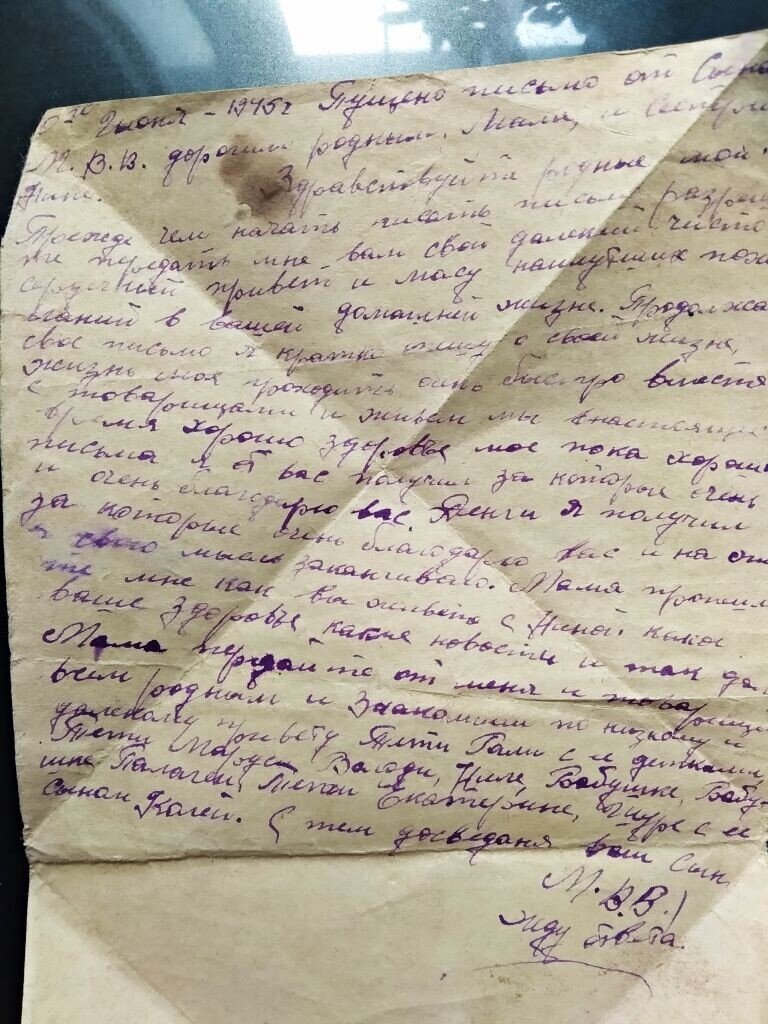 2 июня - 1945 г Пущено письмо от Сына
М. В. В. дорогим родным. Маме, и Сестре
Нине. Здравствуйте родные мои
Прежде чем начать писать письмо разреши
те передать мне вам свой далекий чисто
сердечный привет и масу наилутших поже
ланий в вашей домашней жизне. Продолжа
свое письмо я кратко опишу о своей жизне,
жизнь моя проходить очно быстро вместе
с товарищами и живем мы внастоящее
время хорошо здоровье мое пока хорошо
письма я от вас получил за которые очень
и очень благодарю вас. Деньги я получил
за которые очень благодарю вас и на этом
я свою мысль заканчиваю. Мама пропиши
те мне как вы живете с Ниной. какое
ваше здоровье, какие новости и так дал
Мама передайте от меня и товарищей
всем родным и знакомым по низкому и
далекому привету Тети Гали с ее детками,
Тети Марусе, Володи, Ниле Бабушке, Бабу-
шке Палагеи, тети Екатерине, Шуре с ее
сыном Колей. С тем досведаня ваш Сын
М. В. В.)
жду ответа.